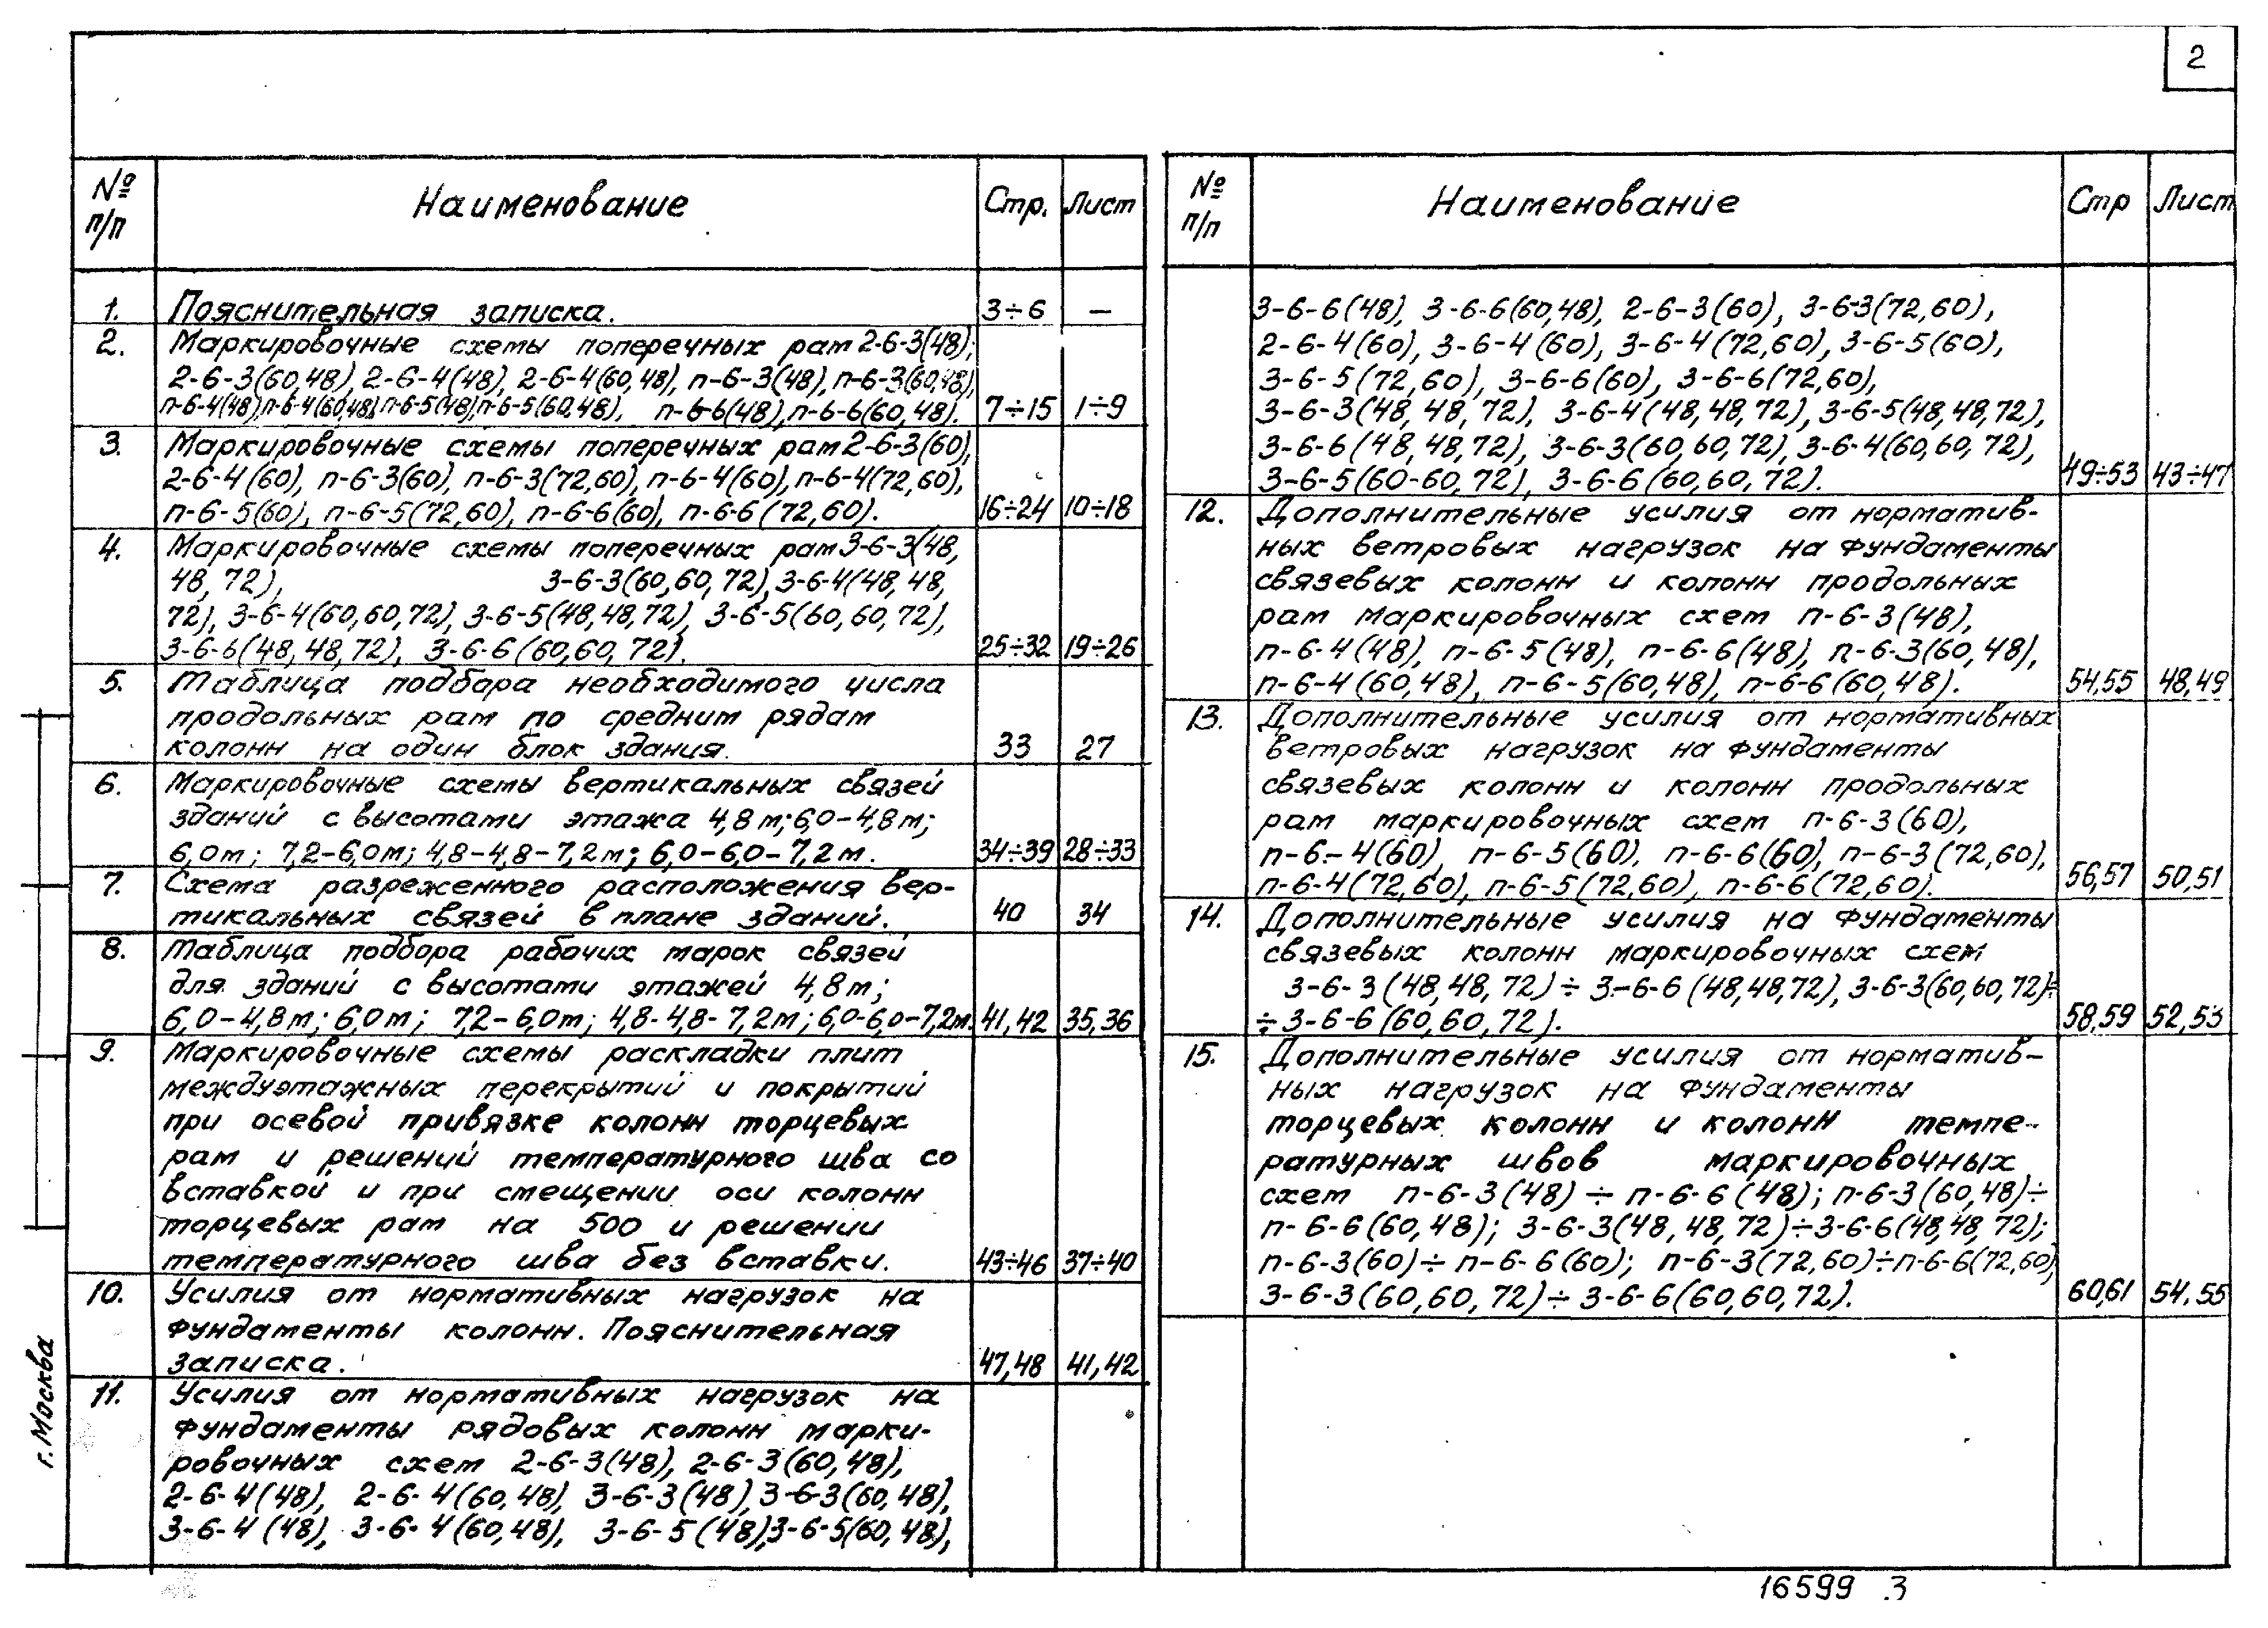 2
№ п/п Наименование Стр. Лист
1. Пояснительная записка. 3÷6 —
2. Маркировочные схемы поперечных рам 2-6-3(48),
2-6-3(60,48), 2-6-4(48), 2-6-4(60,48), п-6-3(48), п-6-3(60,48),
п-6-4(48), п-6-4(60,48), п-6-5(48), п-6-5(60,48), п-6-6(48), п-6-6(60,48). 7÷15 1÷9
3. Маркировочные схемы поперечных рам 2-6-3(60),
2-6-4(60), п-6-3(60), п-6-3(72,60), п-6-4(60), п-6-4(72,60),
п-6-5(60), п-6-5(72,60), п-6-6(60), п-6-6(72,60). 16÷24 10÷18
4. Маркировочные схемы поперечных рам 3-6-3(48,
48,72), 3-6-3(60,60,72), 3-6-4(48,48,
72), 3-6-4(60,60,72), 3-6-5(48,48,72), 3-6-5(60,60,72),
3-6-6(48,48,72), 3-6-6(60,60,72). 25÷32 19÷26
5. Таблица подбора необходимого числа
продольных рам по средним рядам
колонн на один блок здания. 33 27
6. Маркировочные схемы вертикальных связей
зданий с высотами этажа 4,8м; 6,0-4,8м;
6,0м; 7,2-6,0м; 4,8-4,8-7,2м; 6,0-6,0-7,2м. 34÷39 28÷33
7. Схема разреженного расположения вер-
тикальных связей в плане зданий. 40 34
8. Таблица подбора рабочих марок связей
для зданий с высотами этажей 4,8м;
6,0-4,8м; 6,0м; 7,2-6,0м; 4,8-4,8-7,2м; 6,0-6,0-7,2м. 41,42 35,36
9. Маркировочные схемы раскладки плит
междуэтажных перекрытий и покрытий
при осевой привязке колонн торцевых
рам и решений температурного шва со
вставкой и при смещении оси колонн
торцевых рам на 500 и решении
температурного шва без вставки. 43÷46 37÷40
10. Усилия от нормативных нагрузок на
фундаменты колонн. Пояснительная
записка. 47,48 41,42
11. Усилия от нормативных нагрузок на
фундаменты рядовых колонн марки-
ровочных схем 2-6-3(48), 2-6-3(60,48),
2-6-4(48), 2-6-4(60,48), 3-6-3(48), 3-6-3(60,48),
3-6-4(48), 3-6-4(60,48), 3-6-5(48), 3-6-5(60,48),
№ п/п Наименование Стр Лист
3-6-6(48), 3-6-6(60,48), 2-6-3(60), 3-6-3(72,60),
2-6-4(60), 3-6-4(60), 3-6-4(72,60), 3-6-5(60),
3-6-5(72,60), 3-6-6(60), 3-6-6(72,60),
3-6-3(48,48,72), 3-6-4(48,48,72), 3-6-5(48,48,72),
3-6-6(48,48,72), 3-6-3(60,60,72), 3-6-4(60,60,72),
3-6-5(60-60,72), 3-6-6(60,60,72). 49÷53 43÷47
12. Дополнительные усилия от норматив-
ных ветровых нагрузок на фундаменты
связевых колонн и колонн продольных
рам маркировочных схем п-6-3(48),
п-6-4(48), п-6-5(48), п-6-6(48), п-6-3(60,48),
п-6-4(60,48), п-6-5(60,48), п-6-6(60,48). 54,55 48,49
13. Дополнительные усилия от нормативных
ветровых нагрузок на фундаменты
связевых колонн и колонн продольных
рам маркировочных схем п-6-3(60),
п-6-4(60), п-6-5(60), п-6-6(60), п-6-3(72,60),
п-6-4(72,60), п-6-5(72,60), п-6-6(72,60). 56,57 50,51
14. Дополнительные усилия на фундаменты
связевых колонн маркировочных схем
3-6-3(48,48,72)÷3-6-6(48,48,72), 3-6-3(60,60,72)÷
÷3-6-6(60,60,72). 58,59 52,53
15. Дополнительные усилия от норматив-
ных нагрузок на фундаменты
торцевых колонн и колонн темпе-
ратурных швов маркировочных
схем п-6-3(48)÷п-6-6(48); п-6-3(60,48)÷
п-6-6(60,48); 3-6-3(48,48,72)÷3-6-6(48,48,72);
п-6-3(60)÷п-6-6(60); п-6-3(72,60)÷п-6-6(72,60),
3-6-3(60,60,72)÷3-6-6(60,60,72). 60,61 54,55
г. Москва
16599 3